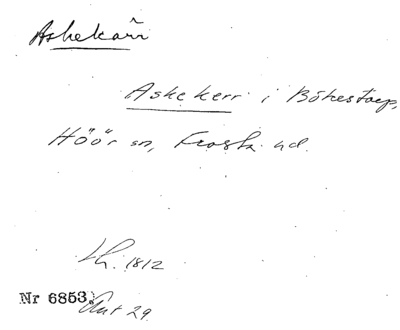 Askekärr
Askekerr i Bökestorp,
Höör sn, Frosta hd.
Lh. 1812
Nr 6853.
Ant 29